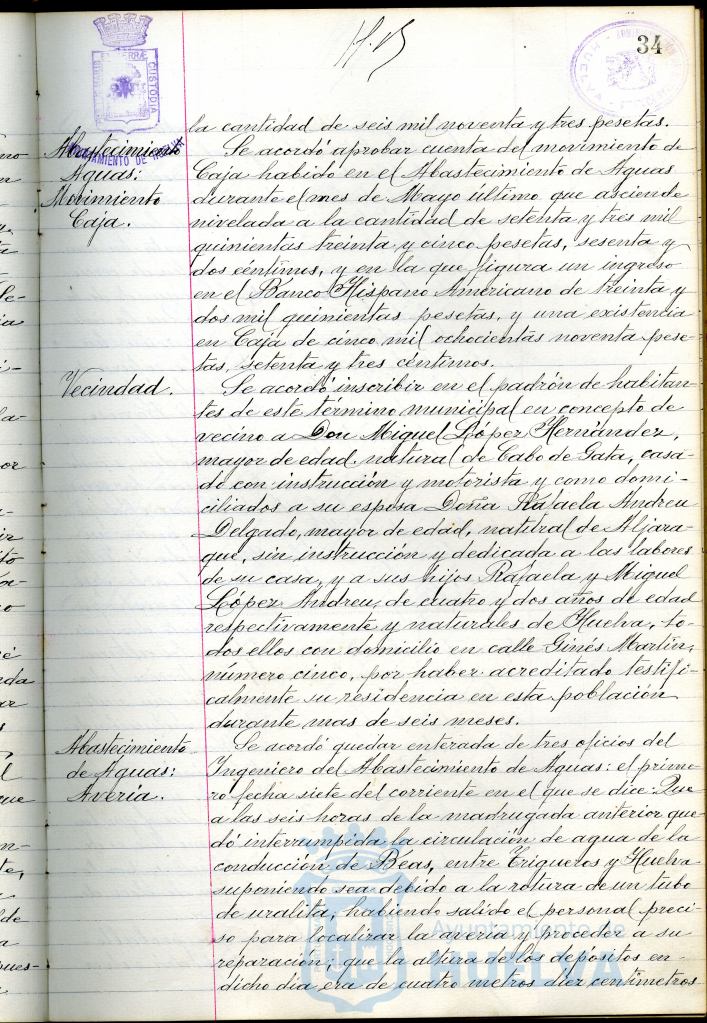 34
la cantidad de seis mil noventa y tres pesetas.
Abastecimiento
Aguas:
Movimiento
Caja.
Se acordó aprobar cuenta del movimiento de
Caja habido en el Abastecimiento de Aguas
durante el mes de Mayo último que asciende
nivelada a la cantidad de setenta y tres mil
quinientas treinta y cinco pesetas, sesenta y
dos céntimos, y en la que figura un ingreso
en el Banco Hispano Americano de treinta y
dos mil quinientas pesetas, y una existencia
en Caja de cinco mil ochocientas noventa pese-
tas, setenta y tres céntimos.
Vecindad.
Se acordó inscribir en el padrón de habitan-
tes de este término municipal en concepto de
vecino a Don Miguel López Hernández,
mayor de edad, natural de Cabo de Gata, casa-
do con instrucción y motorista y como domi-
ciliados a su esposa Doña Rafaela Andreu
Delgado, mayor de edad, natural de Aljara-
que, sin instrucción y dedicada a las labores
de su casa, y a sus hijos Rafaela y Miguel
López Andreu, de cuatro y dos años de edad
respectivamente y naturales de Huelva, to-
dos ellos con domicilio en calle Ginés Martín,
número cinco, por haber acreditado testifi-
calmente su residencia en esta población
durante mas de seis meses.
Abastecimiento
de Aguas:
Avería.
Se acordó quedar enterada de tres oficios del
Ingeniero del Abastecimiento de Aguas: el prime-
ro fecha siete del corriente en el que se dice: Que
a las seis horas de la madrugada anterior que-
dó interrumpida la circulación de agua de la
conducción de Beas, entre Trigueros y Huelva
suponiendo sea debido a la rotura de un tubo
de uralita, habiendo salido el personal preci-
so para localizar la avería y proceder a su
reparación; que la altura de los depósitos en
dicho día era de cuatro metros diez centímetros
CUSTODIA
AYUNTAMIENTO DE HUELVA
Ayuntamiento de
HUELVA